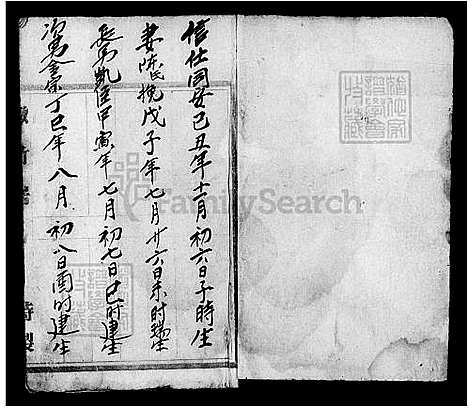 信士同安己丑年十一月初六日子時生
妻陳氏挽戊子年七月廿六日未时瑞生
長男凱臣甲寅年七月初七日巳时建生
次男金集丁巳年八月初八日酉时建生
FamilySearch
特製